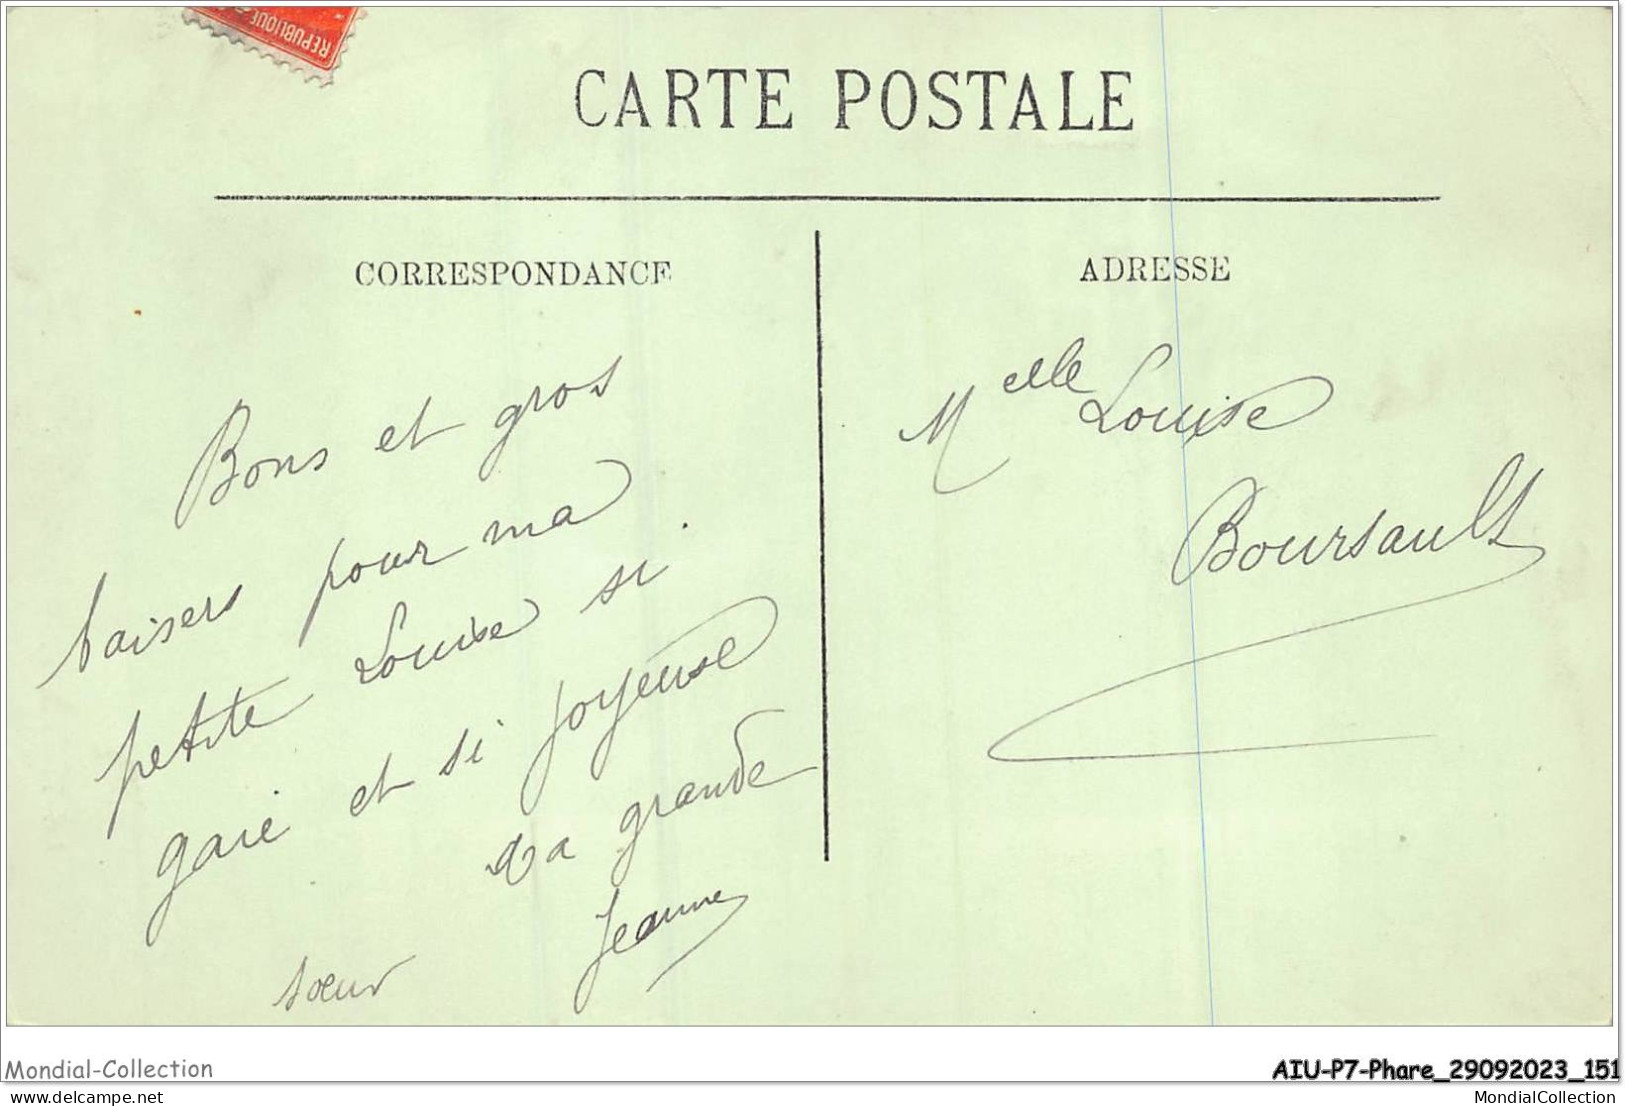 REPUBLIQUE
CARTE POSTALE
CORRESPONDANCE
Bons et gros
baisers pour ma
petite Louise si
gaie et si joyeuse
Ta grande
sœur Jeanne
ADRESSE
Melle Louise
Boursault
Mondial-Collection
AIU-P7-Phare_29092023_151
delcampe.net
MondialCollection